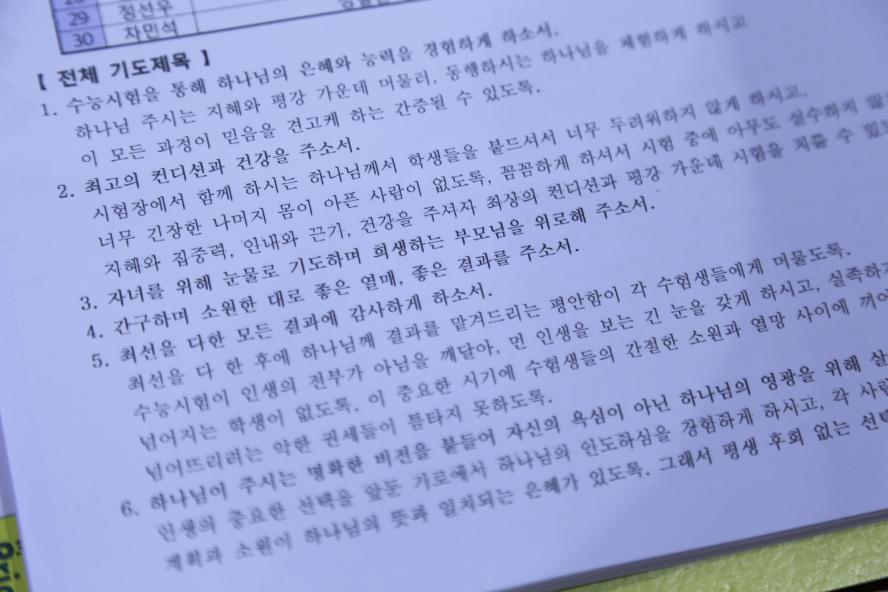 29 정선우
30 차민석
【 전체 기도제목 】
1. 수능시험을 통해 하나님의 은혜와 능력을 경험하게 하소서.
하나님 주시는 지혜와 평강 가운데 머물러, 동행하시는 하나님을 체험하게 하시고
이 모든 과정이 믿음을 견고케 하는 간증될 수 있도록.
2. 최고의 컨디션과 건강을 주소서.
시험장에서 함께 하시는 하나님께서 학생들을 붙드셔서 너무 두려워하지 않게 하시고,
너무 긴장한 나머지 몸이 아픈 사람이 없도록, 꼼꼼하게 하셔서 시험 중에 아무도 실수하지 않
지혜와 집중력, 인내와 끈기, 건강을 주셔자 최상의 컨디션과 평강 가운데 시험을 치를 수
3. 자녀를 위해 눈물로 기도하며 희생하는 부모님을 위로해 주소서.
4. 간구하며 소원한 대로 좋은 열매, 좋은 결과를 주소서.
5. 최선을 다한 모든 결과에 감사하게 하소서.
최선을 다 한 후에 하나님께 결과를 맡겨드리는 평안함이 각 수험생들에게 머물도록.
수능시험이 인생의 전부가 아님을 깨달아, 먼 인생을 보는 긴 눈을 갖게 하시고, 실족하
넘어지는 학생이 없도록, 이 중요한 시기에 수험생들의 간절한 소원과 열망 사이에 끼어
넘어뜨리려는 악한 권세들이 틈타지 못하도록.
6. 하나님이 주시는 명확한 비전을 붙들어 자신의 욕심이 아닌 하나님의 영광을 위해
인생의 중요한 선택을 앞둔 기로에서 하나님의 인도하심을 경험하게 하시고, 각
계획과 소원이 하나님의 뜻과 일치되는 은혜가 있도록. 그래서 평생 후회 없는 선택